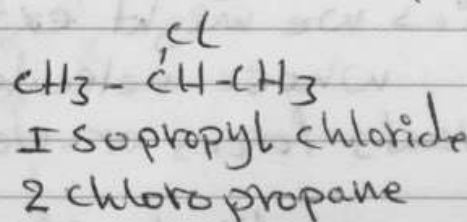 Cl
CH3-CH-CH3
Isopropyl chloride
2 chloropropane